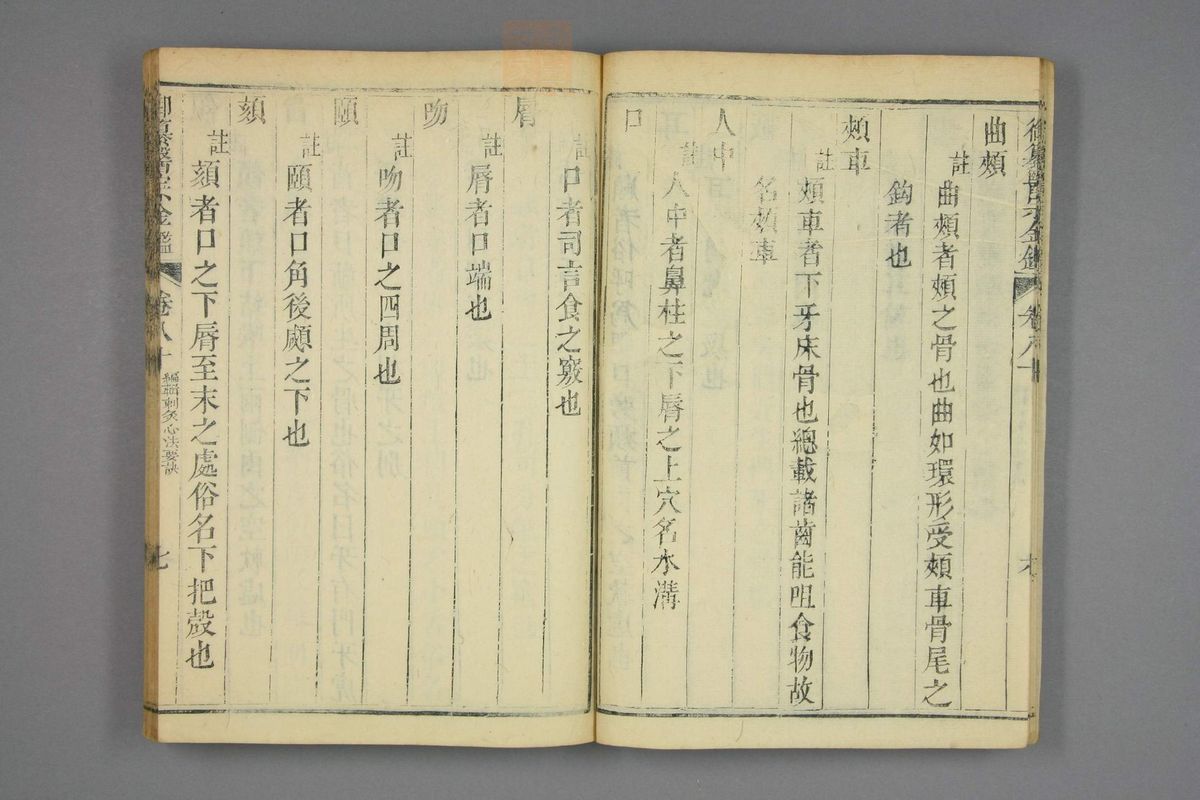 曲頰
註曲頰者頰之骨也曲如環形受頰車骨尾之
鈎者也
頰車
註頰車者下牙床骨也總載諸齒能咀食物故
名頰車
人中
註人中者鼻柱之下脣之上穴名水溝
口
註口者司言食之竅也
脣
註脣者口端也
吻
註吻者口之四周也
頤
註頤者口角後䫇之下也
頦
註頦者口之下脣至末之處俗名下把殼也
金鑑
卷八十
編輯刺灸心法要訣
七